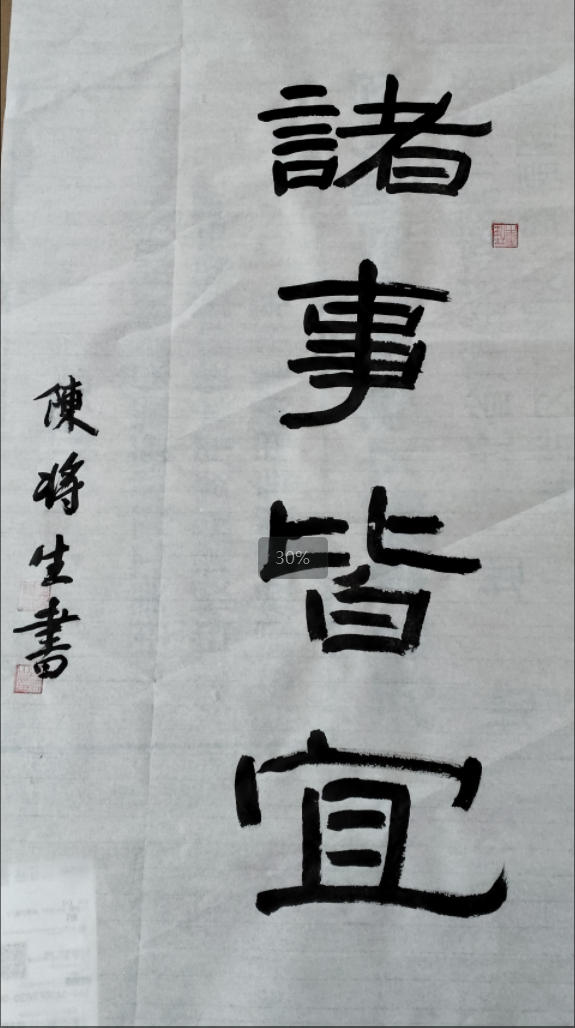 諸事皆宜
陳将生書
30%